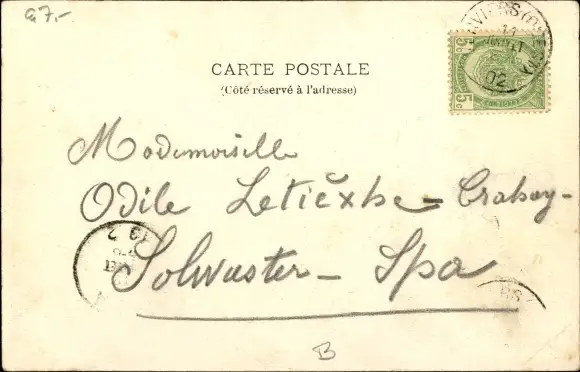 a7,-
CARTE POSTALE
(Côté réservé à l'adresse)
5c 5c
02
Mademoiselle
Odile Letiexhe - Crahay -
Solwaster - Spa
B